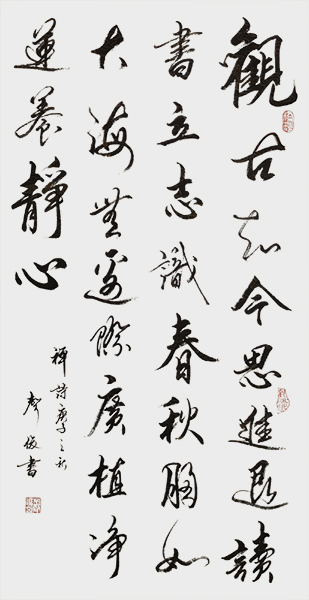 觀古知今思進退讀
書立志識春秋胸如
大海無邊際廣植净
蓮養靜心
禪詩庚子之秋
俊書